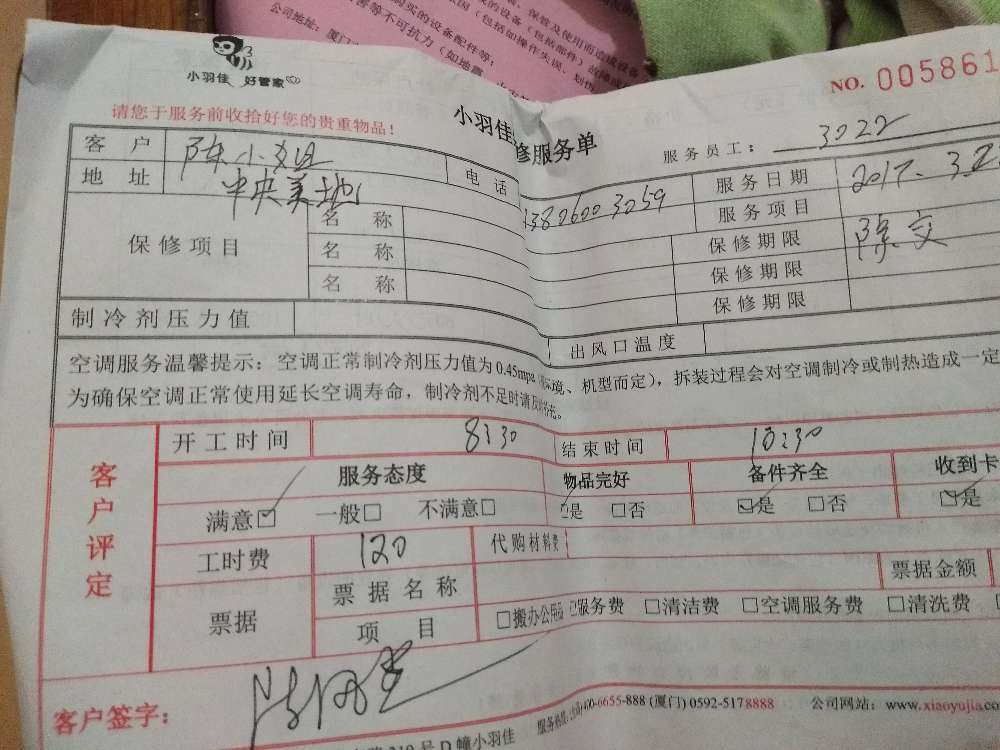 购买的设备配件等；
害等不可抗力（如地震
公司地址：厦门
小羽佳 好管家
NO. 005861
请您于服务前收拾好您的贵重物品！
小羽佳
修服务单
服务员工： 3022
客 户 陈小姐 电 话 13806003059 服务日期 2017.3.2
地 址 中央美地 服务项目
保修项目 名 称 保修期限
名 称 保修期限
名 称 保修期限
制冷剂压力值 出风口温度
空调服务温馨提示：空调正常制冷剂压力值为0.45mpa 环境、机型而定），拆装过程会对空调制冷或制热造成一定
为确保空调正常使用延长空调寿命，制冷剂不足时请及 补充。
客户评定
开工时间 8:30 结束时间 10:30
服务态度 物品完好 备件齐全 收到卡
满意☑ 一般□ 不满意□ ☑是 □否 ☑是 □否 ☑是
工时费 120 代购材料费
票据 票据名称 票据金额
项 目 □搬办公用品 ☑服务费 □清洁费 □空调服务费 □清洗费
客户签字：
服务热线 400-6655-888 (厦门) 0592-5178888 公司网站：www.xiaoyujia.com
号D幢小羽佳